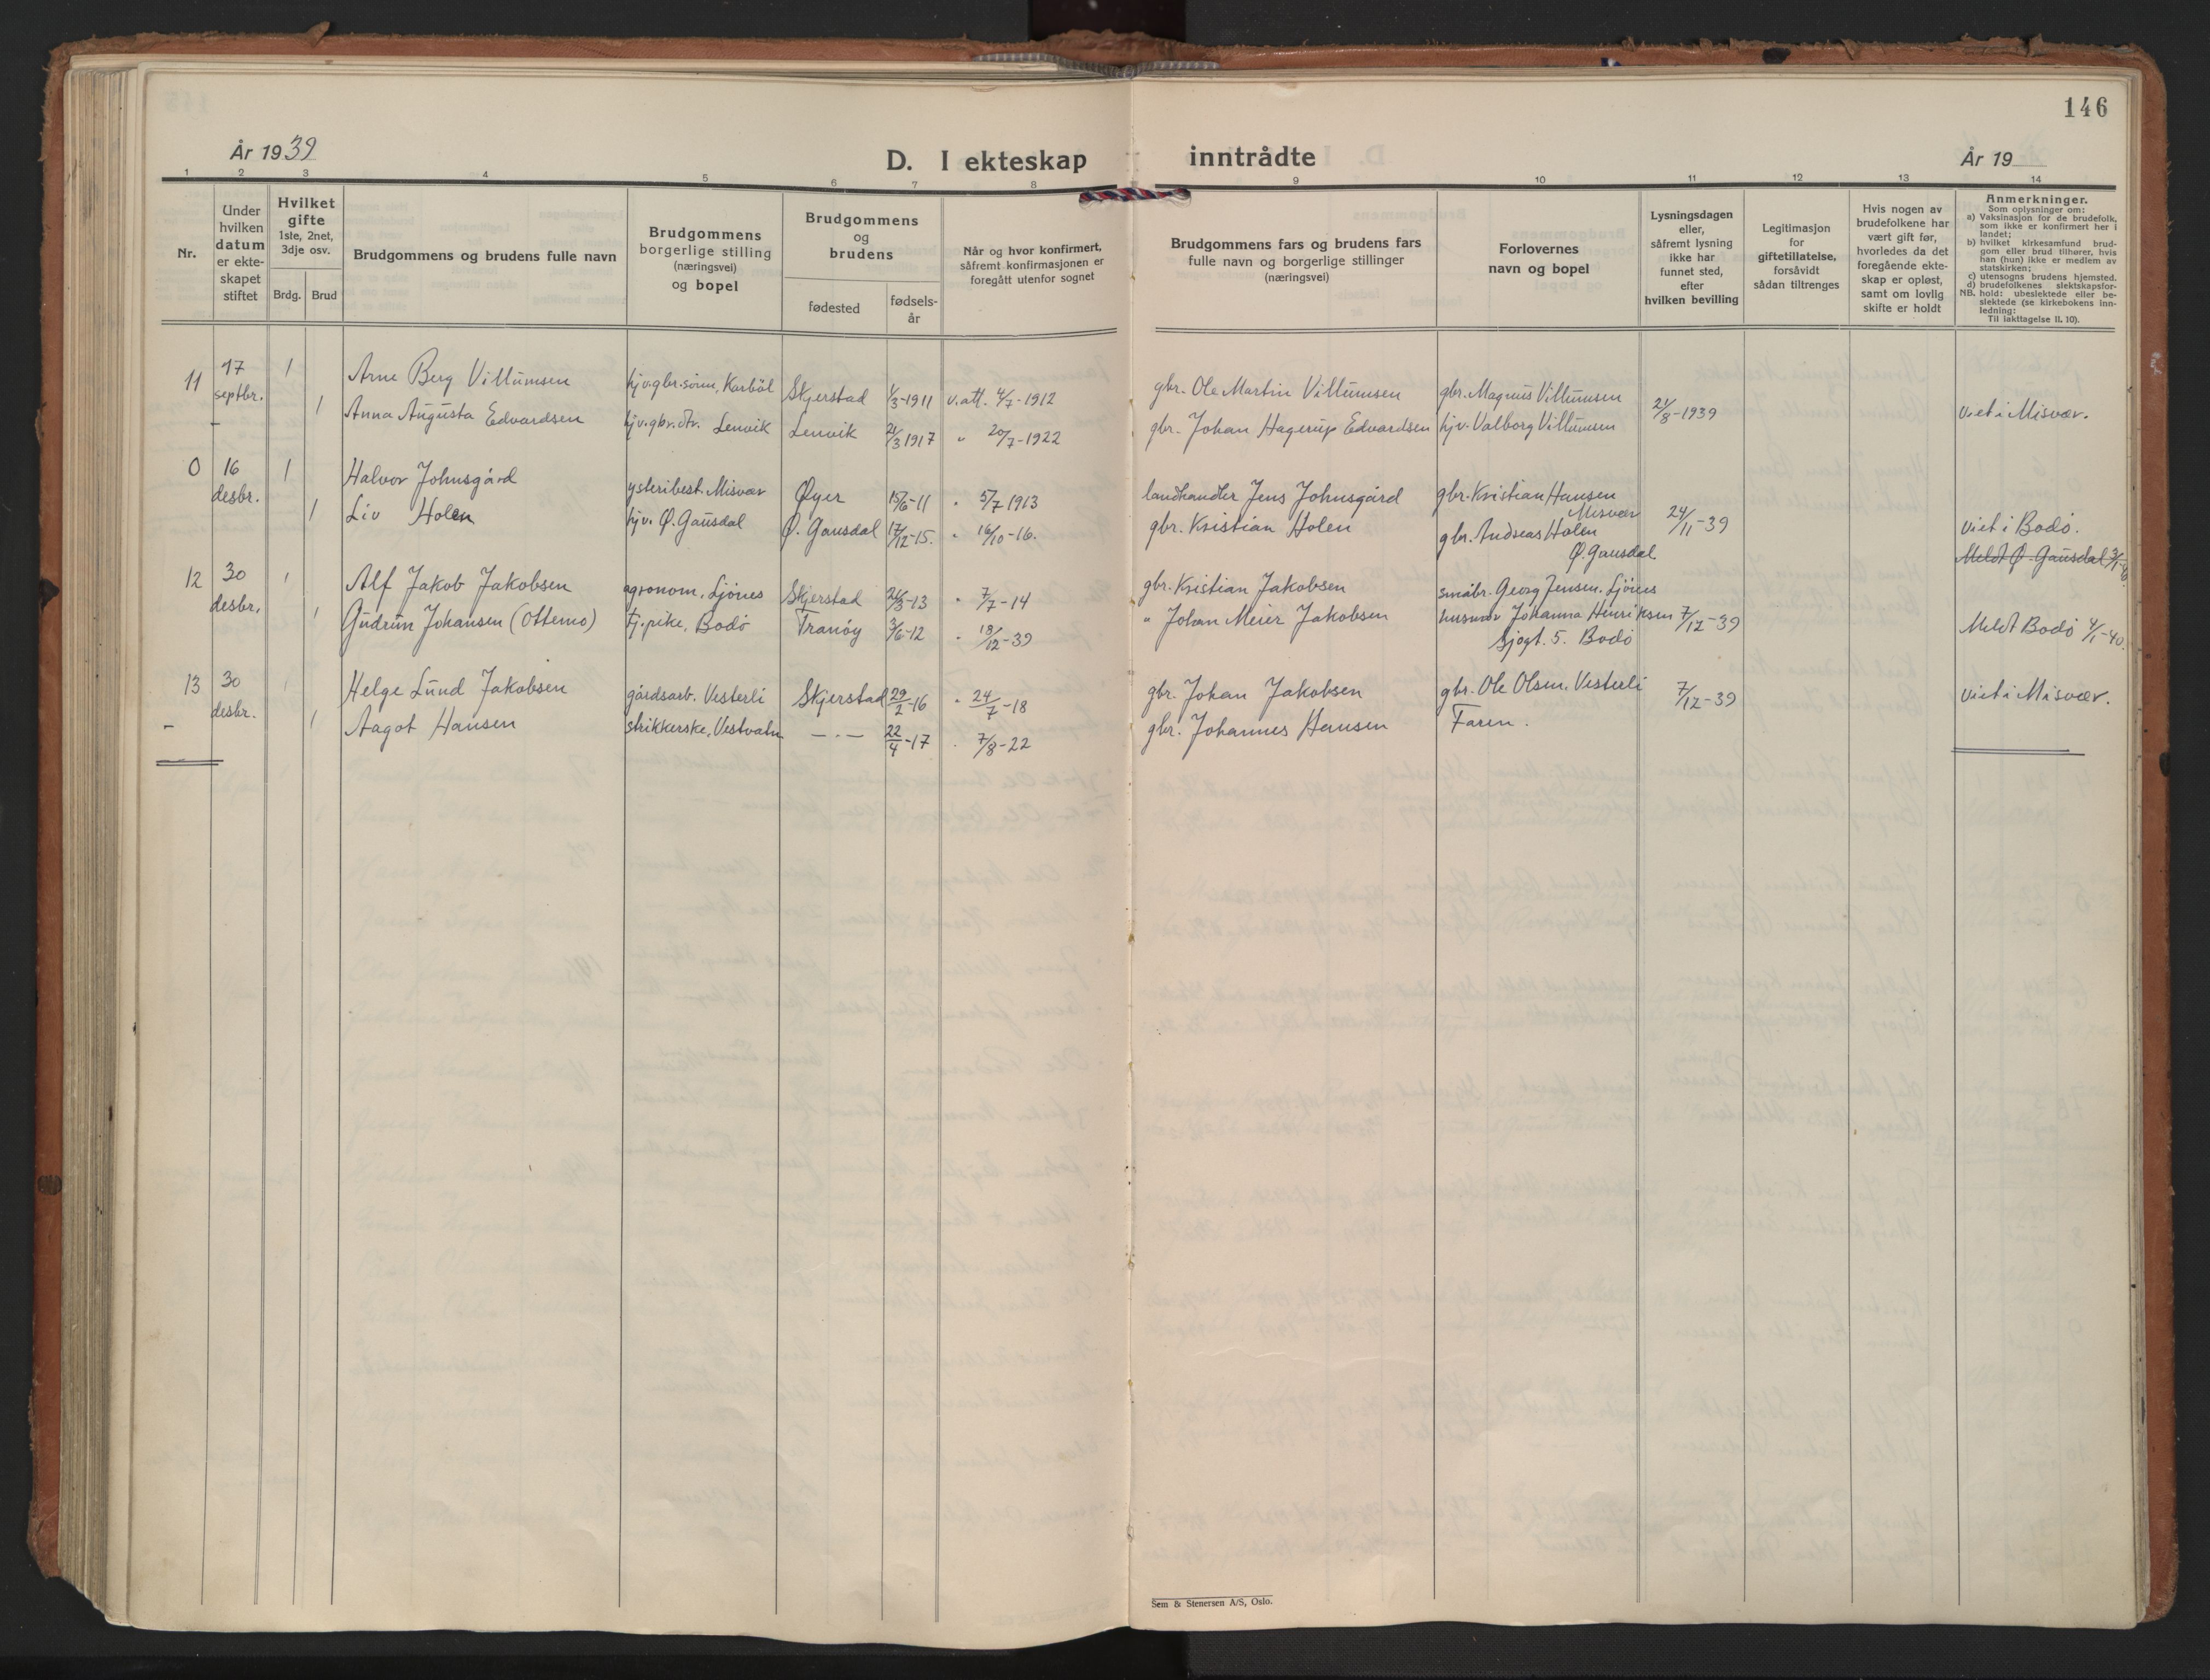 146
År 1939
D. I ekteskap inntrådte
År 19
1 2 3 4 5 6 7 8 9 10 11 12 13 14
Nr.
Under hvilken datum er ekte-skapet stiftet
Hvilket gifte 1ste, 2net, 3dje osv.
Brdg. Brud
Brudgommens og brudens fulle navn
Brudgommens borgerlige stilling (næringsvei) og bopel
Brudgommens og brudens
fødested
fødsels-år
Når og hvor konfirmert, såfremt konfirmasjonen er foregått utenfor sognet
Brudgommens fars og brudens fars fulle navn og borgerlige stillinger (næringsvei)
Forlovernes navn og bopel
Lysningsdagen eller, såfremt lysning ikke har funnet sted, efter hvilken bevilling
Legitimasjon for giftetillatelse, forsåvidt sådan tiltrenges
Hvis nogen av brudefolkene har vært gift før, hvorledes da det foregående ekte-skap er opløst, samt om lovlig skifte er holdt
Anmerkninger.
Som oplysninger om:
a) Vaksinasjon for de brudefolk, som ikke er konfirmert her i landet;
b) hvilket kirkesamfund brud-gom eller brud tilhører, hvis han (hun) ikke er medlem av statskirken;
c) utensogns brudens hjemsted.
d) brudefolkenes slektskapsfor-
NB. hold: ubeslektede eller be-slektede (se kirkebokens inn-ledning:
Til iakttagelse II. 10).
11 17 septbr. 1 Arne Berg Villumsen hjv. gbr. sønn, Karbøl Skjerstad 1/3-1911 v. att. 4/7-1912 gbr. Ole Martin Villumsen gbr. Magnus Villumsen 21/8-1939 viet i Misvær.
- 1 Anna Augusta Edvardsen hjv. gbr. dtr. Lenvik Lenvik 21/3 1917 " 20/7-1922 gbr. Johan Hagerup Edvardsen hjv. Valborg Villumsen
0 16 desbr. 1 Halvor Johnsgård ysteribest. Misvær Øyer 15/6-11 " 5/7 1913 landhandler Jens Johnsgård gbr. Kristian Hansen Misvær 24/11-39 viet i Bodø.
1 Liv Holen hjv. Ø. Gausdal Ø. Gausdal 17/12-15. " 16/10-16. gbr. Kristian Holen gbr. Andreas Holen Ø. Gausdal Meldt Ø. Gausdal 3/1-40.
12 30 desbr. 1 Alf Jakob Jakobsen agronom, Ljönes Skjerstad 26/3-13 " 7/7-14 gbr. Kristian Jakobsen småbr. Georg Jensen, Ljönes
1 Gudrun Johansen (Ottemo) tj. pike, Bodø Tranöy 3/6-12 " 18/12-39 " Johan Meier Jakobsen husmor Johanna Henriksen 7/12-39 Meldt Bodø 4/1-40.
Sjøgt. 5. Bodø
13 30 desbr. 1 Helge Lund Jakobsen gårdsarb. Vesterli Skjerstad 29/2-16 " 24/7-18 gbr. Johan Jakobsen gbr. Ole Olsen, Vesterli 7/12-39 viet i Misvær.
- 1 Aagot Hansen strikkerske, Vestvatn — " — 22/4-17 " 7/8-22 gbr. Johannes Hansen Faren.
Sem & Stenersen A/S, Oslo.